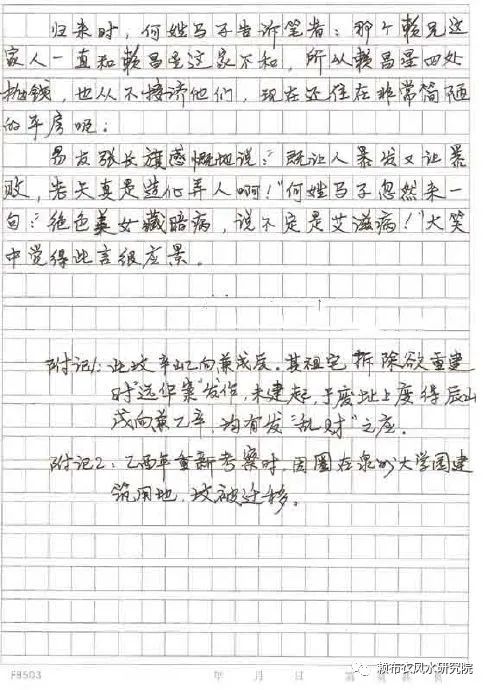 归来时，何姓马子告诉笔者：那个赖兄这
家人一直和赖昌星这家不和，所以赖昌星四处
抛钱，也从不接济他们，现在还住在非常简陋
的平房呢；
易友张长旗感慨地说："既让人暴发又让暴
败，老天真是造化弄人啊！"何姓马子忽然来一
句："绝色美女藏暗病，说不定是艾滋病！"大笑
中觉得此言很应景。
附记1：此坟辛山乙向兼戌辰。其祖宅拆除欲重建
时"远华案"发作，未建起，于废址上度得辰山
戌向兼乙辛，均有发"乱财"之应。
附记2：乙酉年重新考察时，因圈在泉州大学园建
筑用地，坟被迁移。
F8503
年 月 日 第 页
赖布衣风水研究院